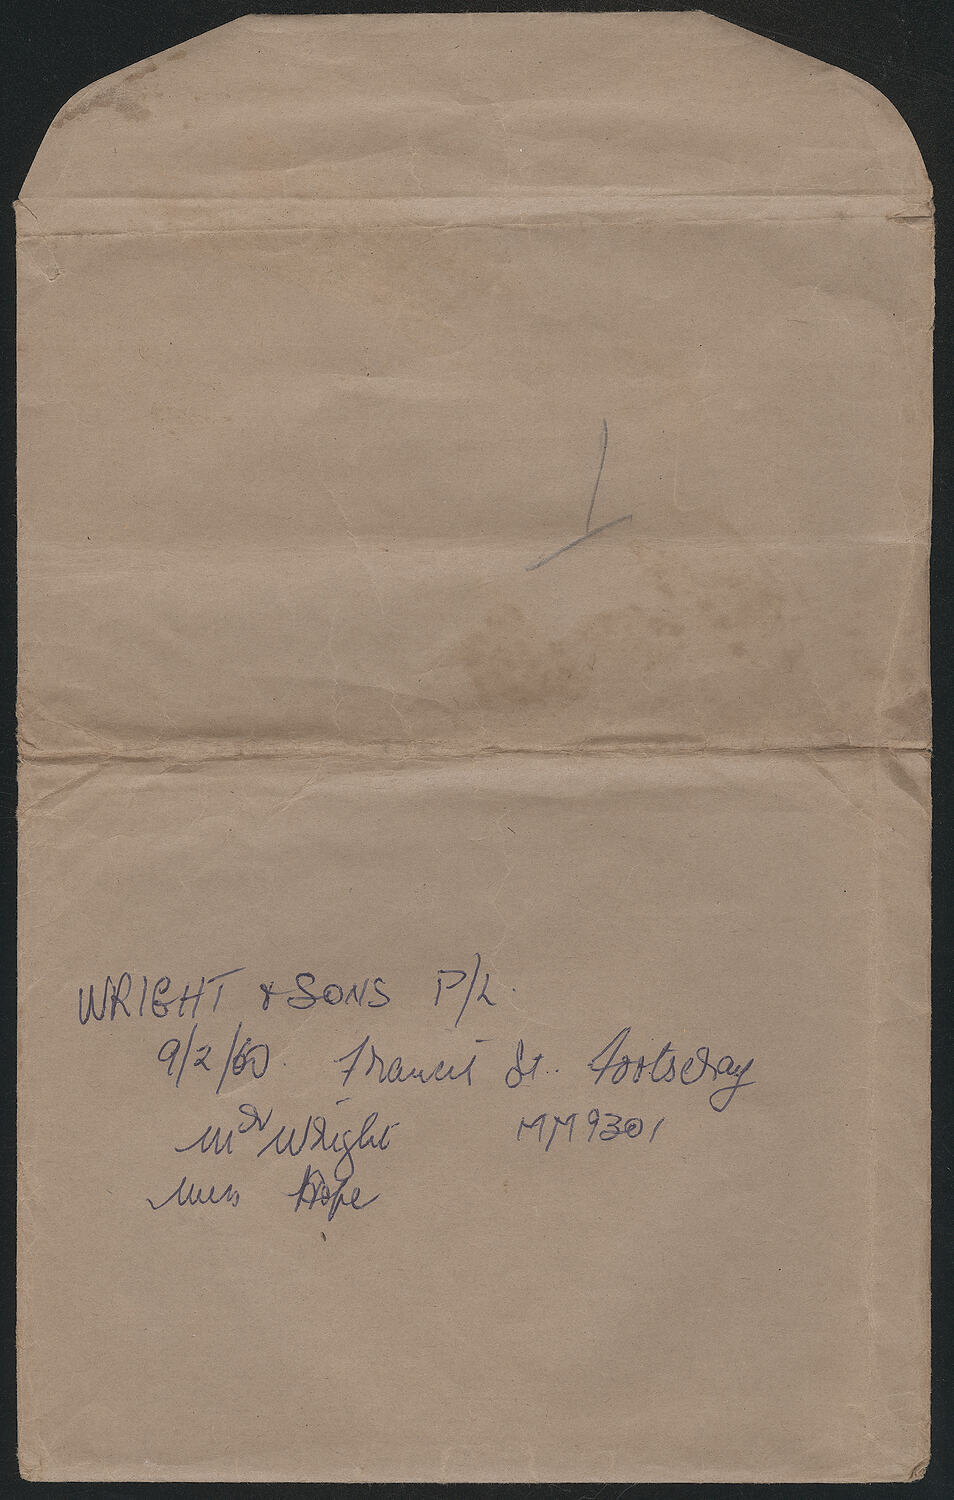 WRIGHT & SONS P/L.
9/2/60. Francis St. Footscray
Mr Wright MM9301
Miss Hope